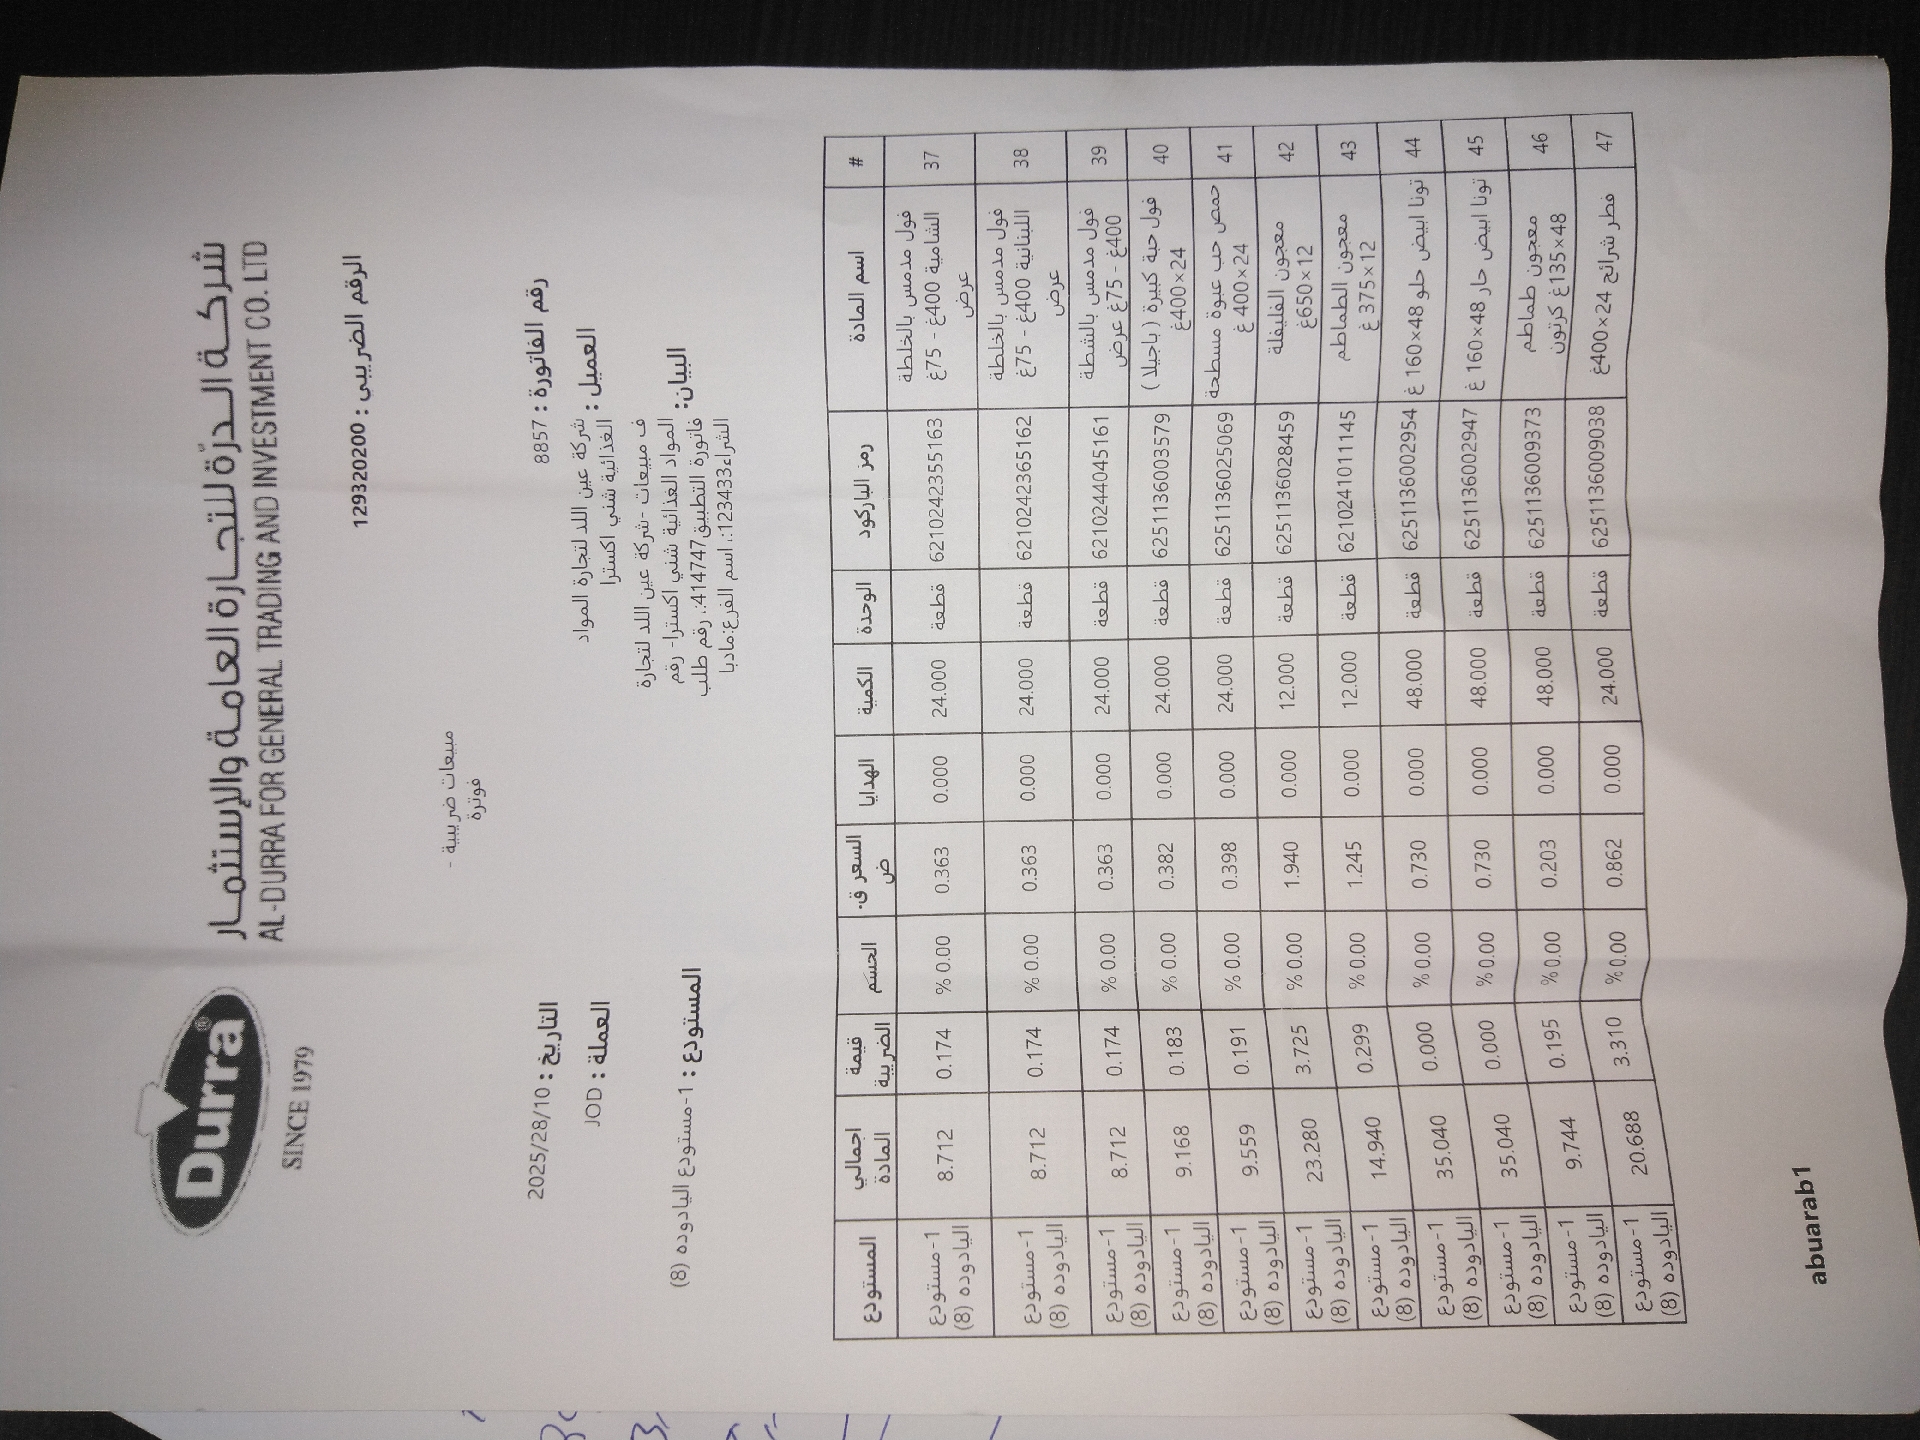 Durra®
SINCE 1979
شركة الدرّة للتجارة العامة والإستثمار
AL-DURRA FOR GENERAL TRADING AND INVESTMENT CO. LTD
الرقم الضريبي : 129320200
مبيعات ضريبية -
فوترة
رقم الفاتورة : 8857
التاريخ : 2025/28/10
العميل : شركة عين اللد لتجارة المواد
الغذائية شني اكسترا
العملة : JOD
البيان: ف مبيعات -شركة عين اللد لتجارة
المواد الغذائية شني اكسترا- رقم
فاتورة التطبيق4114747:.رقم طلب
الشراء123433:. اسم الفرع:مادبا
المستودع : 1-مستودع اليادوده (8)
# اسم المادة رمز الباركود الوحدة الكمية الهدايا السعر ق.ض الحسم قيمة الضريبة اجمالي المادة المستودع
37 فول مدمس بالخلطة الشامية 400غ - 75غ عرض 6210242355163 قطعة 24.000 0.000 0.363 % 0.00 0.174 8.712 1-مستودع اليادوده (8)
38 فول مدمس بالخلطة اللبنانية 400غ - 75غ عرض 6210242365162 قطعة 24.000 0.000 0.363 % 0.00 0.174 8.712 1-مستودع اليادوده (8)
39 فول مدمس بالشطة 400غ - 75غ عرض 6210244045161 قطعة 24.000 0.000 0.363 % 0.00 0.174 8.712 1-مستودع اليادوده (8)
40 فول حبة كبيرة ( باجيلا ) 24×400غ 6251136003579 قطعة 24.000 0.000 0.382 % 0.00 0.183 9.168 1-مستودع اليادوده (8)
41 حمص حب عبوة مسطحة 24×400 غ 6251136025069 قطعة 24.000 0.000 0.398 % 0.00 0.191 9.559 1-مستودع اليادوده (8)
42 معجون الفليفلة 12×650غ 6251136028459 قطعة 12.000 0.000 1.940 % 0.00 3.725 23.280 1-مستودع اليادوده (8)
43 معجون الطماطم 12×375 غ 6210241011145 قطعة 12.000 0.000 1.245 % 0.00 0.299 14.940 1-مستودع اليادوده (8)
44 تونا ابيض حلو 48×160 غ 6251136002954 قطعة 48.000 0.000 0.730 % 0.00 0.000 35.040 1-مستودع اليادوده (8)
45 تونا ابيض حار 48×160 غ 6251136002947 قطعة 48.000 0.000 0.730 % 0.00 0.000 35.040 1-مستودع اليادوده (8)
46 معجون طماطم 48×135غ كرتون 6251136009373 قطعة 48.000 0.000 0.203 % 0.00 0.195 9.744 1-مستودع اليادوده (8)
47 فطر شرائح 24×400غ 6251136009038 قطعة 24.000 0.000 0.862 % 0.00 3.310 20.688 1-مستودع اليادوده (8)
abuarab1